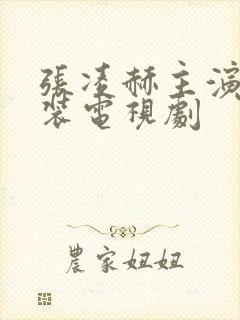 張凌赫主演
裝電視劇
農家妞妞